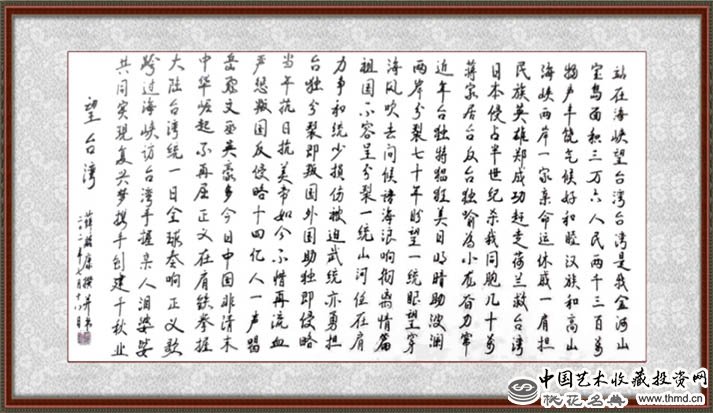 站在海峡望台湾台湾是我金河山
宝岛面积三万六人民两千三百万
物产丰饶气候好和睦汉族和高山
海峡两岸一家亲命运休戚一肩担
民族英雄郑成功赶走荷兰救台湾
日本侵占半世纪杀我同胞几十万
蒋家居台反台独
近年台独特猖狂美日明暗助波澜
两岸分裂七十年盼望一统眼望穿
海风吹去问候语海浪响
祖国不容呈分裂一统山河任在肩
力争和统少损伤被迫武统亦勇担
台独分裂即叛国外国助独即侵略
当年抗日抗美帝如今不惜再流血
严惩叛国反侵略十四亿人一声唱
岳飞文丞英豪多今日中国非清末
中华崛起不再屈正义在肩铁拳握
大陆台湾统一日全球奏响正义歌
跨过海峡访台湾手握亲人泪婆娑
共同实现复兴梦携手创建千秋业
望台湾
薛 康撰并书
二〇二一年七月十八日
中国艺术收藏投资网
优花名典
www.thmd.cn